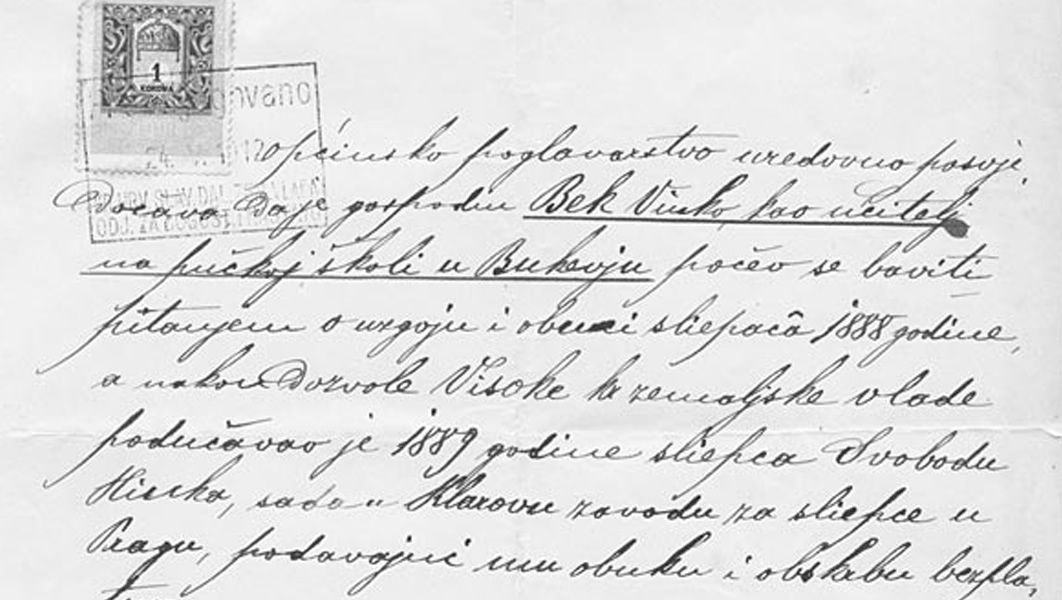 1
KORONA
Općinsko poglavarstvo uredovno posvje
dočava da je gospodin Bek Vinko, kao učitelj
na pučkoj školi u Bukevju počeo se baviti
pitanjem o uzgoju i obuci sliepacâ 1888 godine,
a nakon dozvole Visoke kr zemaljske vlade
podučavao je 1889 godine sliepca Svobodu
Hinka, sada u Klarovu zavodu za sliepce u
Pragu, podavajući mu obuku i obskrbu bezpla,